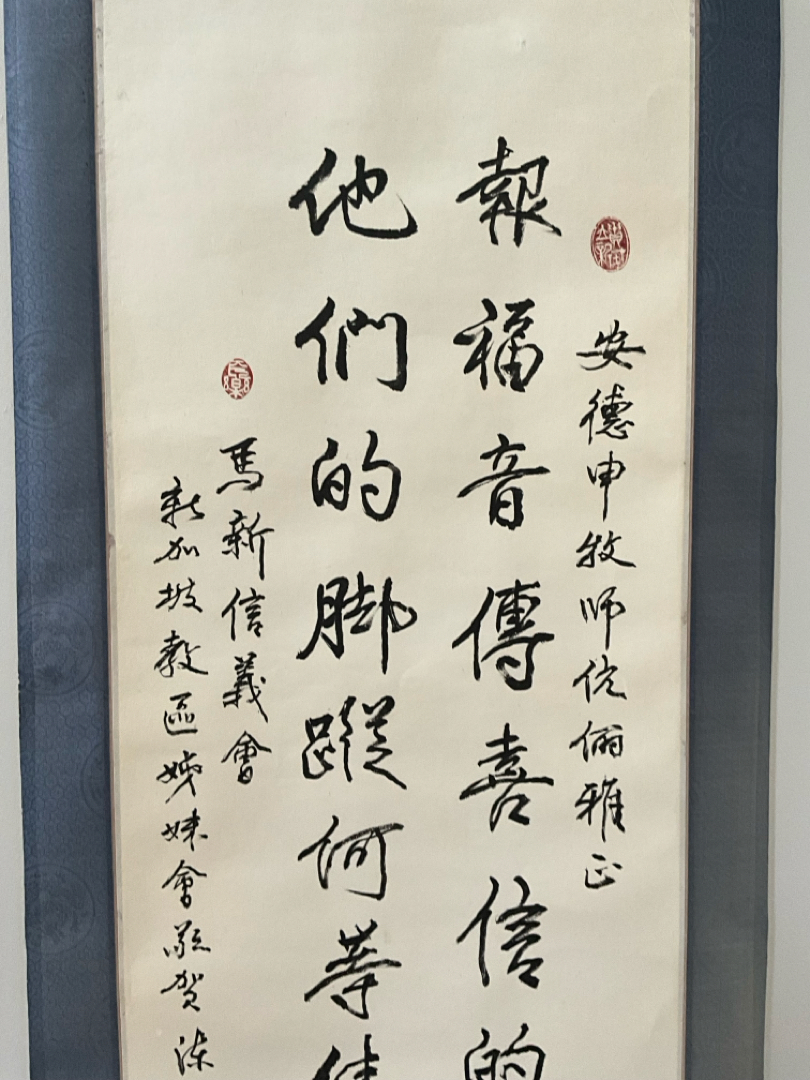 安德申牧師伉儷雅正
報福音傳喜信的
他們的腳蹤何等佳
馬新信義會
新加坡教區姊妹會敬賀